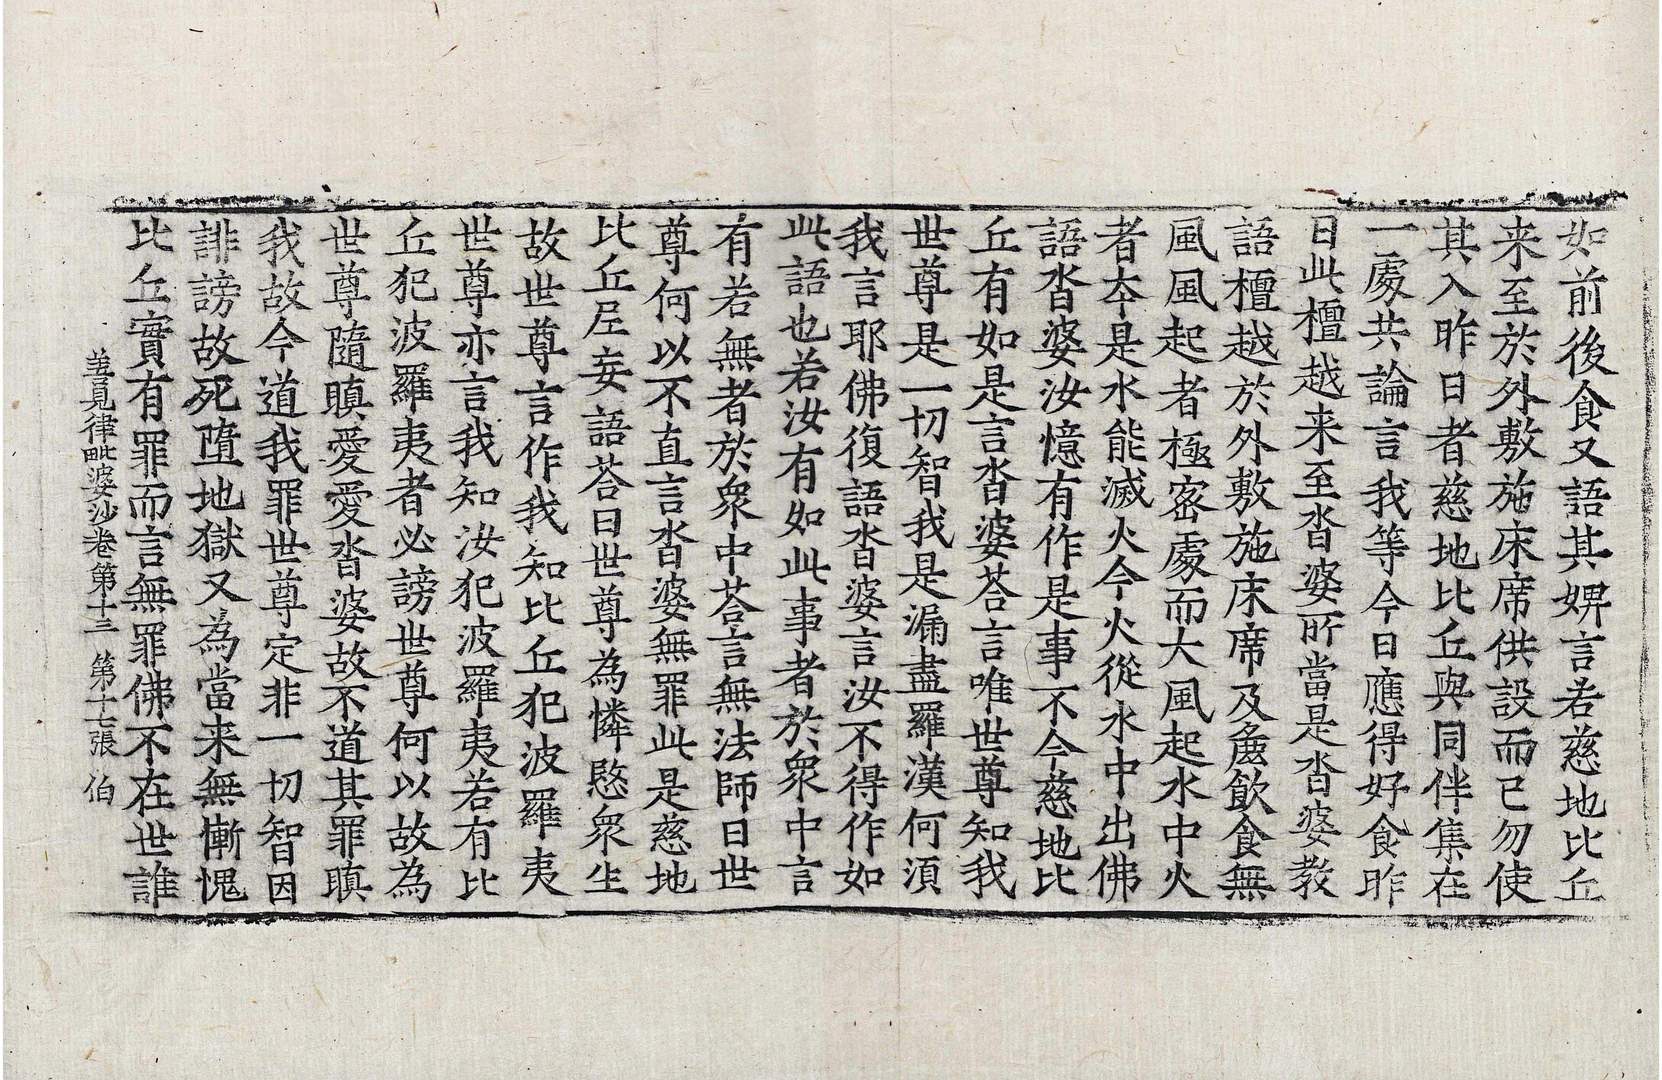 如前後食又語其婢言若慈地比丘
来至於外敷施床席供設而已勿使
其入昨日者慈地比丘與同伴集在
一處共論言我等今日應得好食昨
日此檀越来至沓婆所當是沓婆教
語檀越於外敷施床席及麁飲食無
風風起者極宻處而大風起水中火
者夲是水能滅火今火從水中出佛
語沓婆汝憶有作是事不今慈地比
丘有如是言沓婆荅言唯世尊知我
世尊是一切智我是漏盡羅漢何湏
我言耶佛復語沓婆言汝不得作如
此語也若汝有如此事者於衆中言
有若無者於衆中荅言無法師曰世
尊何以不直言沓婆無罪此是慈地
比丘尼妄語荅曰世尊為憐愍衆生
故世尊言作我知比丘犯波羅夷
世尊亦言我知汝犯波羅夷若有比
丘犯波羅夷者必謗世尊何以故為
世尊隨瞋愛愛沓婆故不道其罪瞋
我故今道我罪世尊定非一切智因
誹謗故死墮地獄又為當来無慚愧
比丘實有罪而言無罪佛不在世誰
善見律毗婆沙卷第十三 第十七張 伯